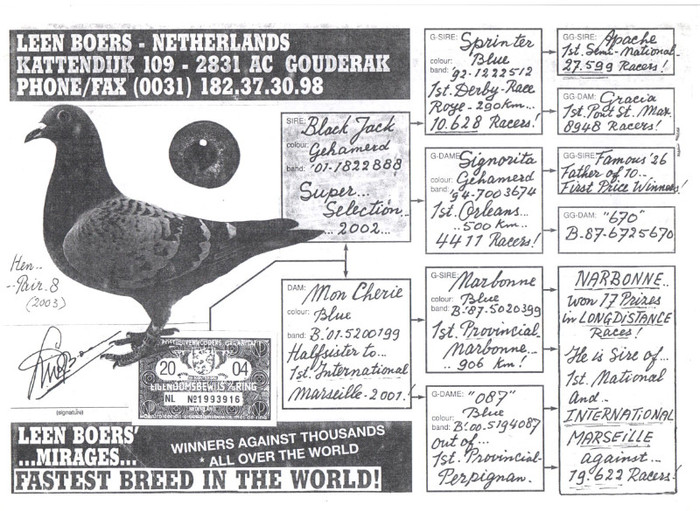 LEEN BOERS - NETHERLANDS
KATTENDIJK 109 - 2831 AC GOUDERAK
PHONE/FAX (0031) 182.37.30.98
Hen...
...Pair. 8
(2003)
(signature)
20 04
EIGENDOMSBEWIJS RING
NL No1993916
LEEN BOERS'
...MIRAGES...
WINNERS AGAINST THOUSANDS
* ALL OVER THE WORLD
FASTEST BREED IN THE WORLD!
SIRE: Black Jack
colour: Gehamerd
band: '01-1822888
Super...
Selection...
...2002...
DAM: Mon Cherie
colour: Blue
B.'01-5200199
Halfsister to...
1st. International
Marseille-2001.!
G-SIRE: Sprinter
colour: Blue
band: '92-1222512
1st. Derby-Race
Roye-290km...
10.628 Racers!
G-DAME: Signorita
colour: Gehamerd
band: '94-7003674
1st. Orleans...
...500 km...
4411 Racers!
G-SIRE: Narbonne
colour: Blue
B.'87-5020399
1st. Provincial.
Narbonne...
...906 km!
G-DAME: "087"
colour: Blue
B.'00-5194087
out of...
1st. Provincial-
Perpignan.
GG-SIRE: Apache
1st. Semi-National-
27.599 Racers!
GG-DAM: Gracia
1st. Pont St. Max.
8948 Racers!
GG-SIRE: Famous '26
Father of 10...
First Price Winners!
GG-DAM: "670"
B-87-6725670
NARBONNE..
won 17 Prizes
in LONGDISTANCE
Races!
He is Sire of...
1st. National
and...
INTERNATIONAL
MARSEILLE
against...
19.622 Racers!